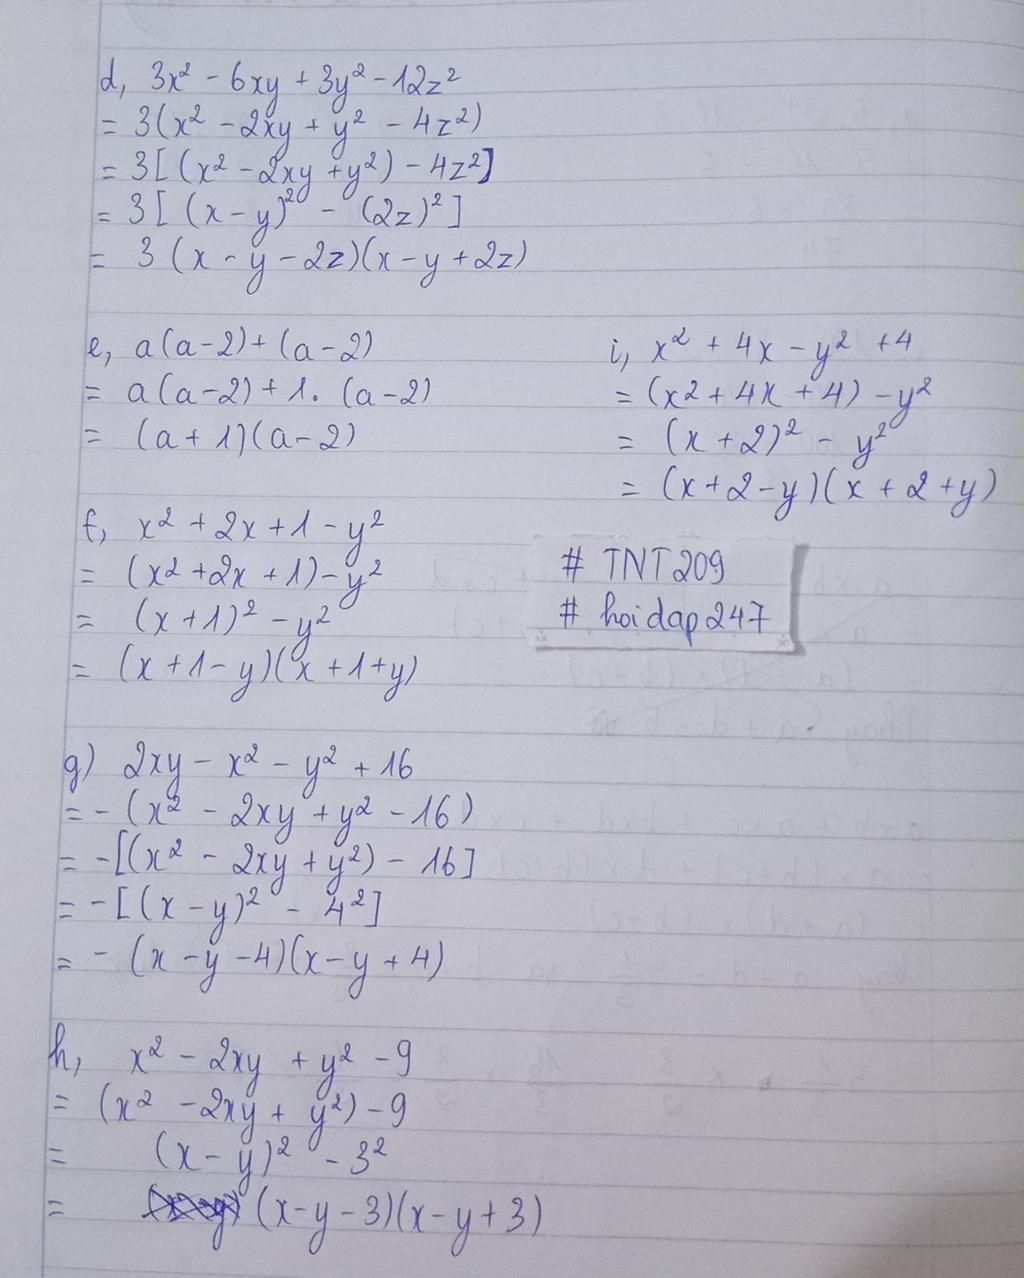 d, 3x² - 6xy + 3y² - 12z²
= 3(x² - 2xy + y² - 4z²)
= 3[(x² - 2xy + y²) - 4z²]
= 3[(x - y)² - (2z)²]
= 3(x - y - 2z)(x - y + 2z)
e, a(a - 2) + (a - 2)
= a(a - 2) + 1. (a - 2)
= (a + 1)(a - 2)
i, x² + 4x - y² + 4
= (x2 + 4x + 4) - y²
= (x + 2)² - y²
= (x + 2 - y)(x + 2 + y)
f, x² + 2x + 1 - y²
= (x² + 2x + 1) - y²
= (x + 1)² - y²
= (x + 1 - y)(x + 1 + y)
# TNT209
# hoidap247
g) 2xy - x² - y² + 16
= - (x² - 2xy + y² - 16)
= -[(x² - 2xy + y²) - 16]
= -[(x - y)² - 4²]
= - (x - y - 4)(x - y + 4)
h, x² - 2xy + y² - 9
= (x² - 2xy + y²) - 9
= (x - y)² - 3²
= (x - y - 3)(x - y + 3)